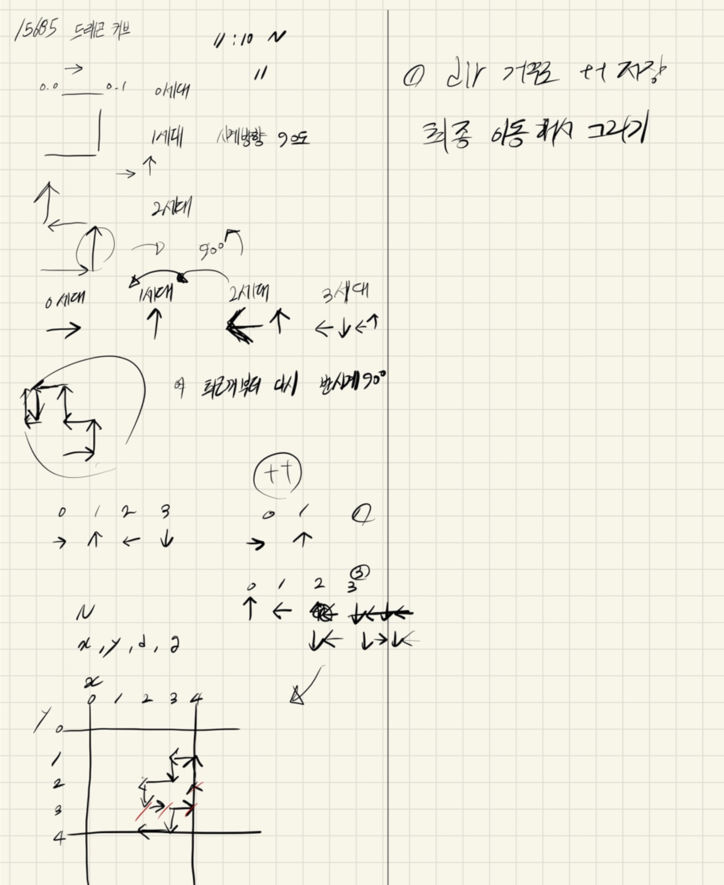 15685 드래곤 커브
11:10 ~
"
0.0 0.1 0세대
1세대 시계방향 90도
→ ↑
2세대
90°
0세대 1세대 2세대 3세대
→ ↑ ← ↑ ← ↓ ← ↑
최근거부터 다시 반시계 90°
++
0 1 2 3
→ ↑ ← ↓
0 1
→ ↑
③
0 1 2 3
↑ ←
↓ ← ↓ → ↓ ←
N
x, y, d, g
x
0 1 2 3 4
y 0
1
2
3
4
① dir 거꾸로 ++ 저장
최종 이동해서 그리기